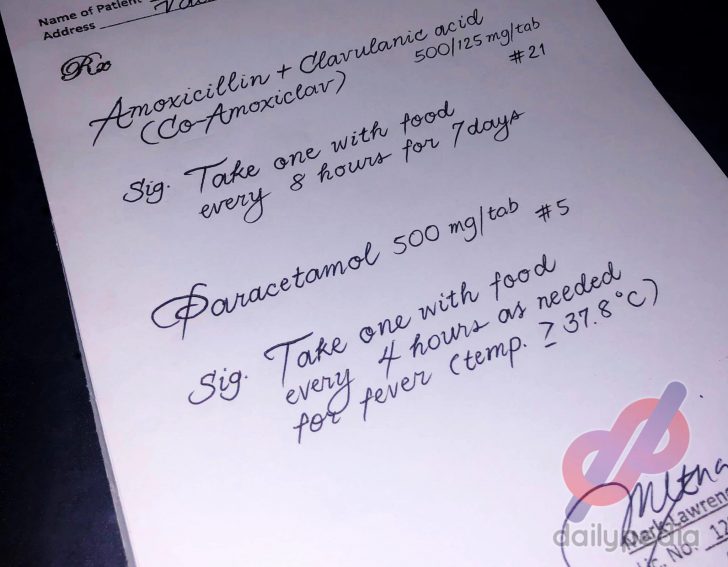 Name of Patient
Address
Rx
Amoxicillin + Clavulanic acid
(Co-Amoxiclav)
500/125 mg/tab
#21
Sig. Take one with food
every 8 hours for 7 days
Paracetamol 500 mg/tab #5
Sig. Take one with food
every 4 hours as needed
for fever (temp. ≥ 37.8°C)
Mark Lawren
dailypedia
Lic. No. 12